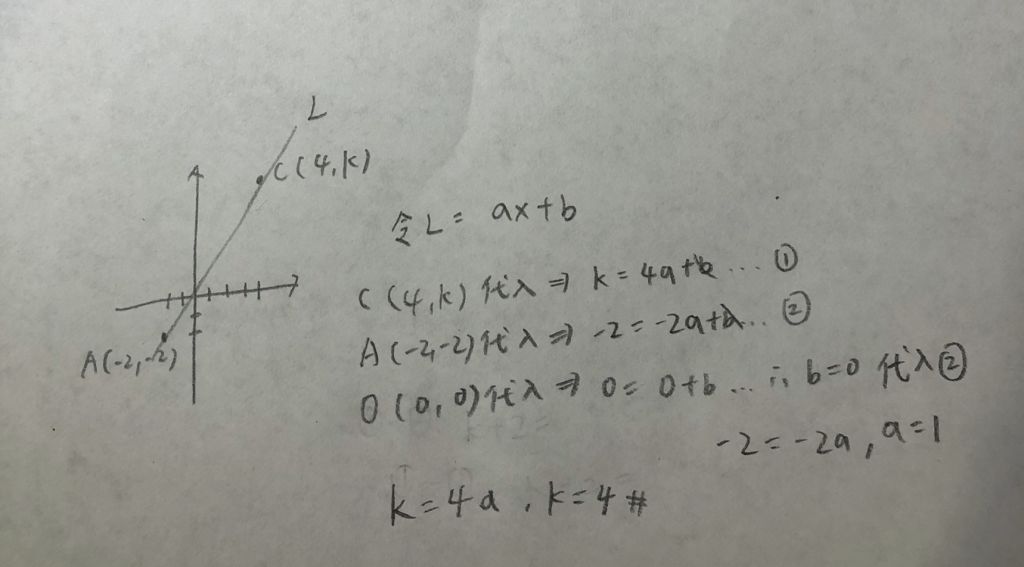 L
C(4,k)
A(-2,-2)
令L= ax+b
C(4,k)代入⇒ k=4a+b ... ①
A(-2,-2)代入⇒ -2=-2a+b... ②
O(0,0)代入⇒ 0= 0+b ... ∴ b=0 代入②
-2=-2a, a=1
k=4a , k=4 #